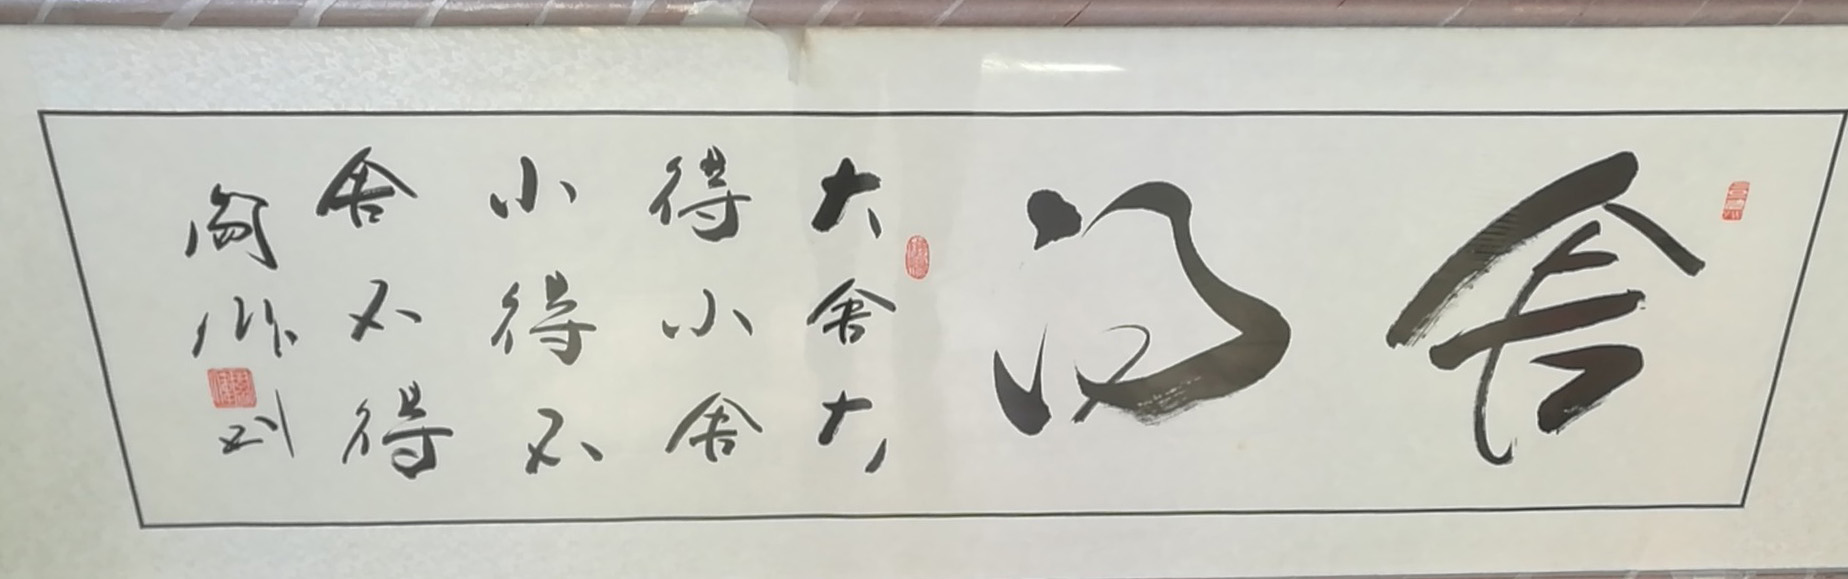 舍得
大舍大
得小舍
小得不
舍不得